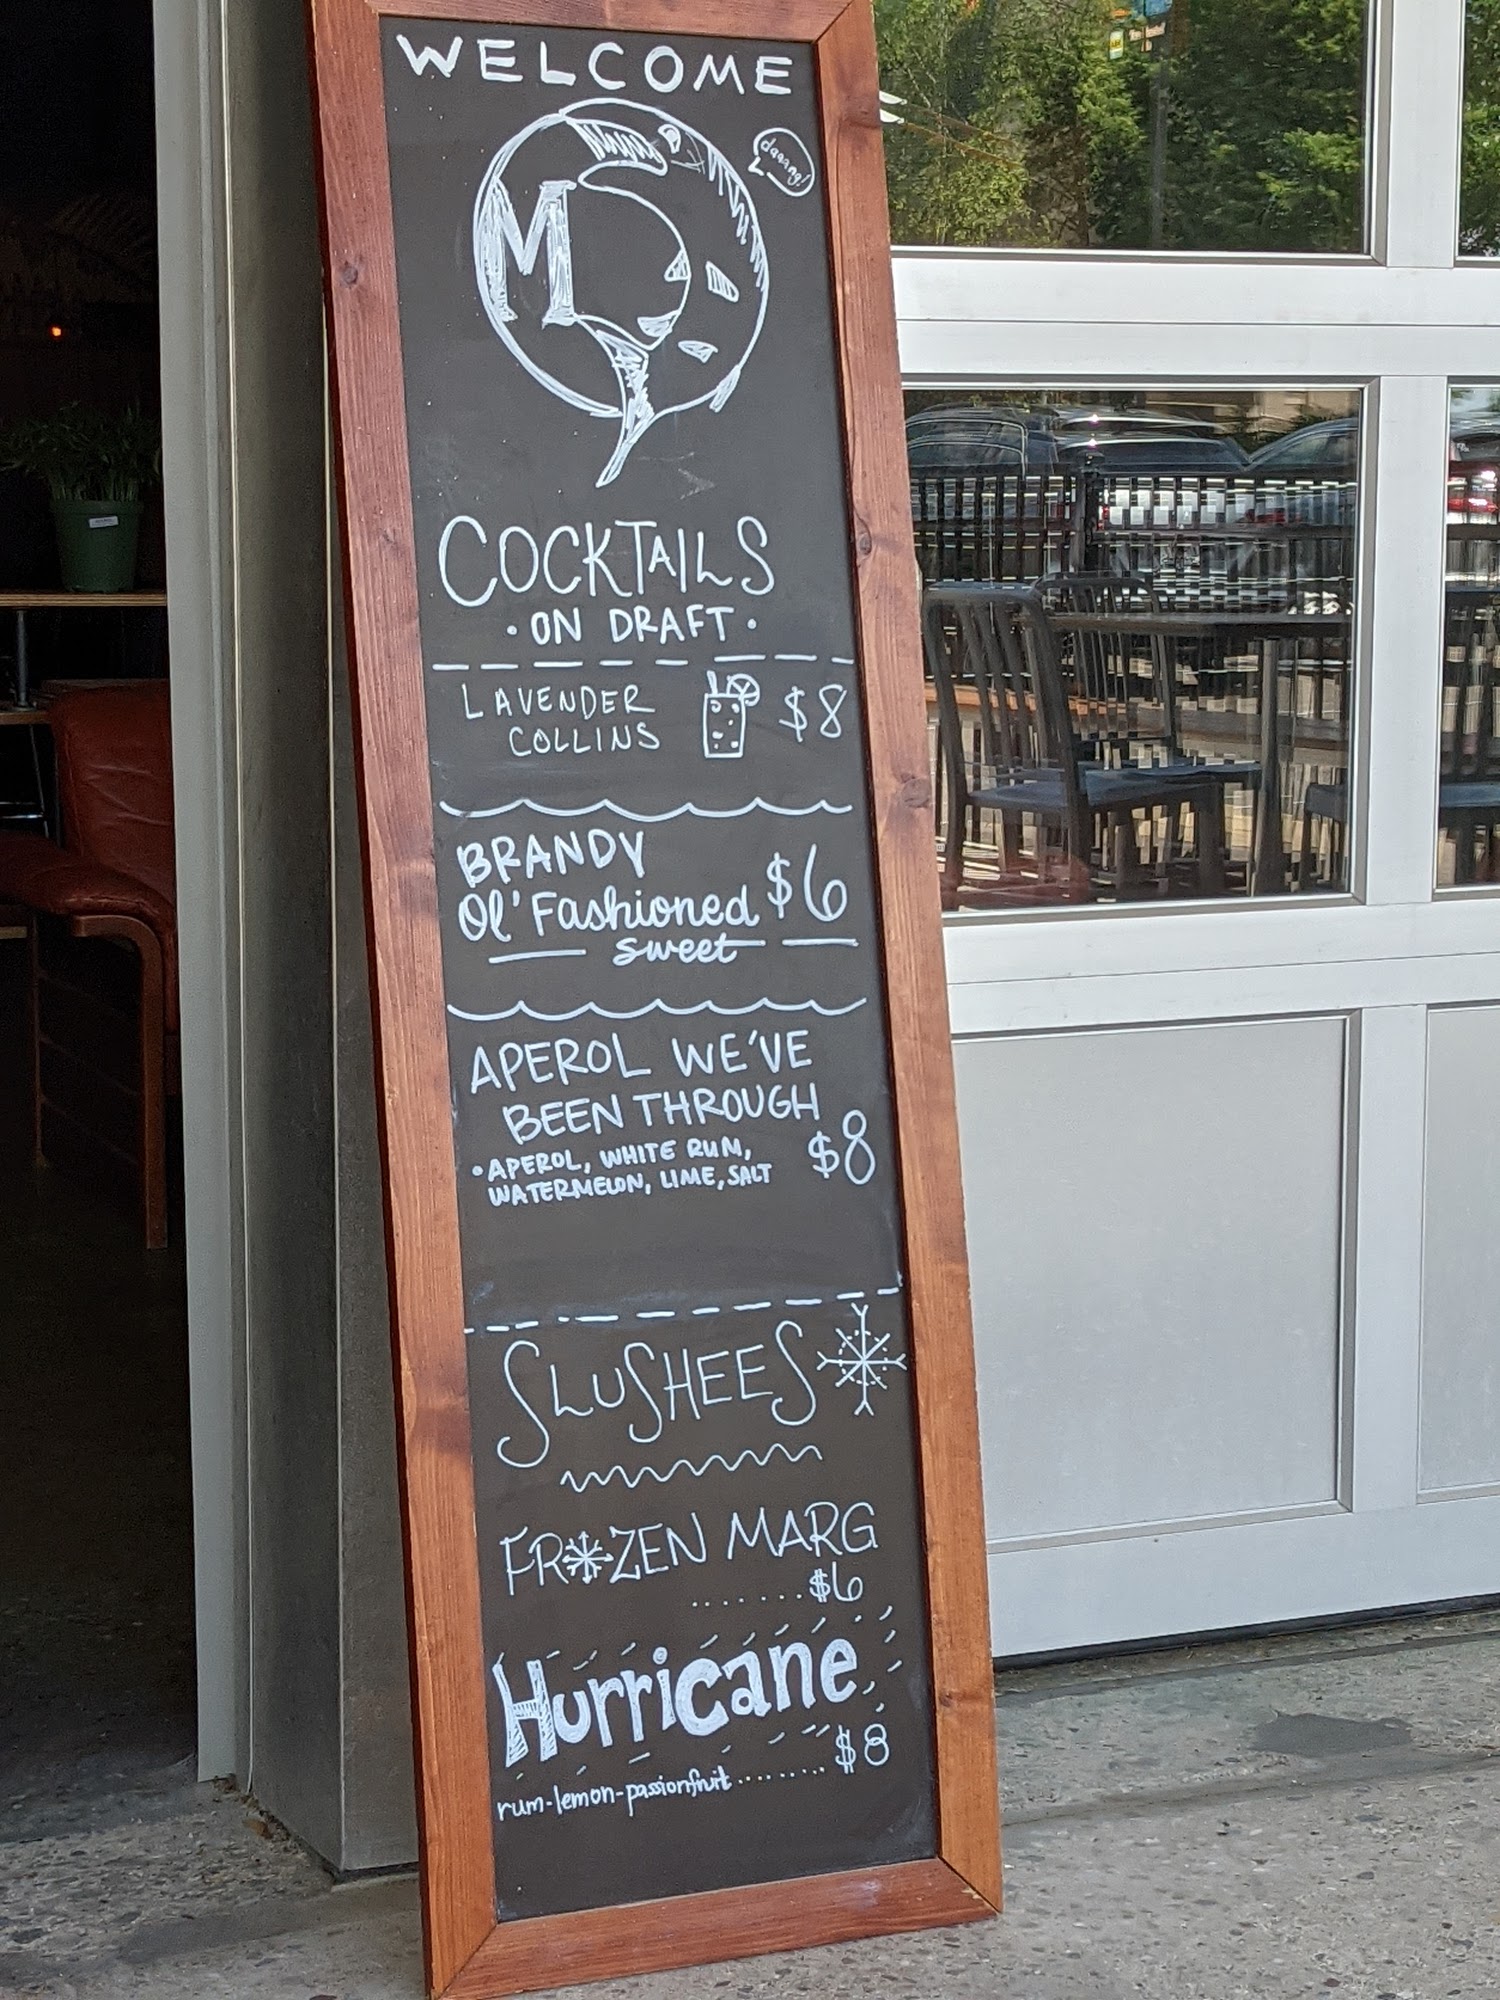 WELCOME
daaang!
M
COCKTAILS
• ON DRAFT •
LAVENDER
COLLINS
$8
BRANDY
Ol' Fashioned $6
sweet
APEROL WE'VE
BEEN THROUGH
• APEROL, WHITE RUM,
WATERMELON, LIME, SALT
$8
SLUSHEES
FROZEN MARG
.......$6
Hurricane
$8
rum-lemon-passionfruit.........